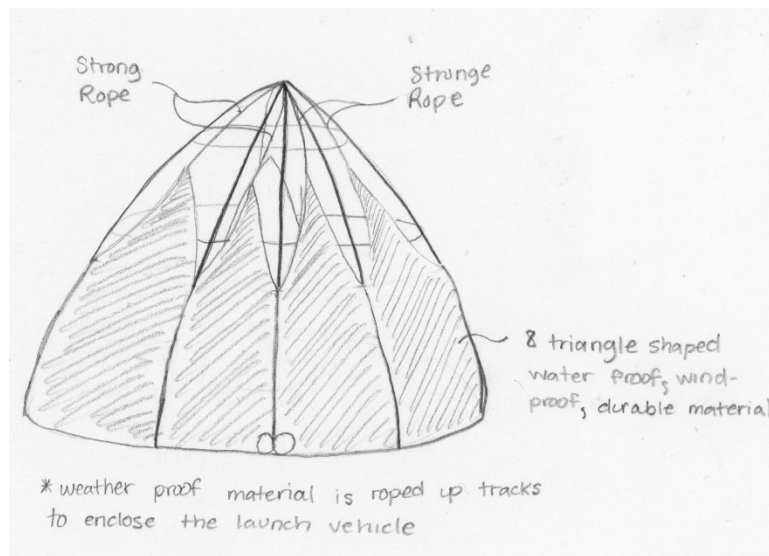 Strong
Rope
Stronge
Rope
8 triangle shaped
water proof, wind-
proof, durable material
* weather proof material is roped up tracks
to enclose the launch vehicle